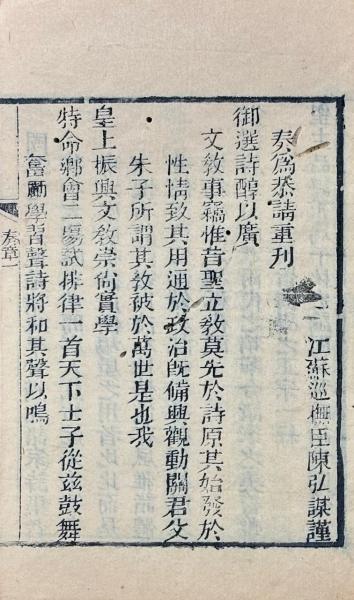 江蘇巡撫臣陳弘謀謹
奏爲恭請重刊
御選詩醇以廣
文敎事竊惟昔聖立敎莫先於詩原其始發於
性情致其用通於政治旣備興觀動關君父
朱子所謂其敎被於萬世是也我
皇上振興文敎崇尙實學
特命鄉會二場試排律一首天下士子從玆鼓舞
奮勵學習聲詩將和其聲以鳴
奏章一